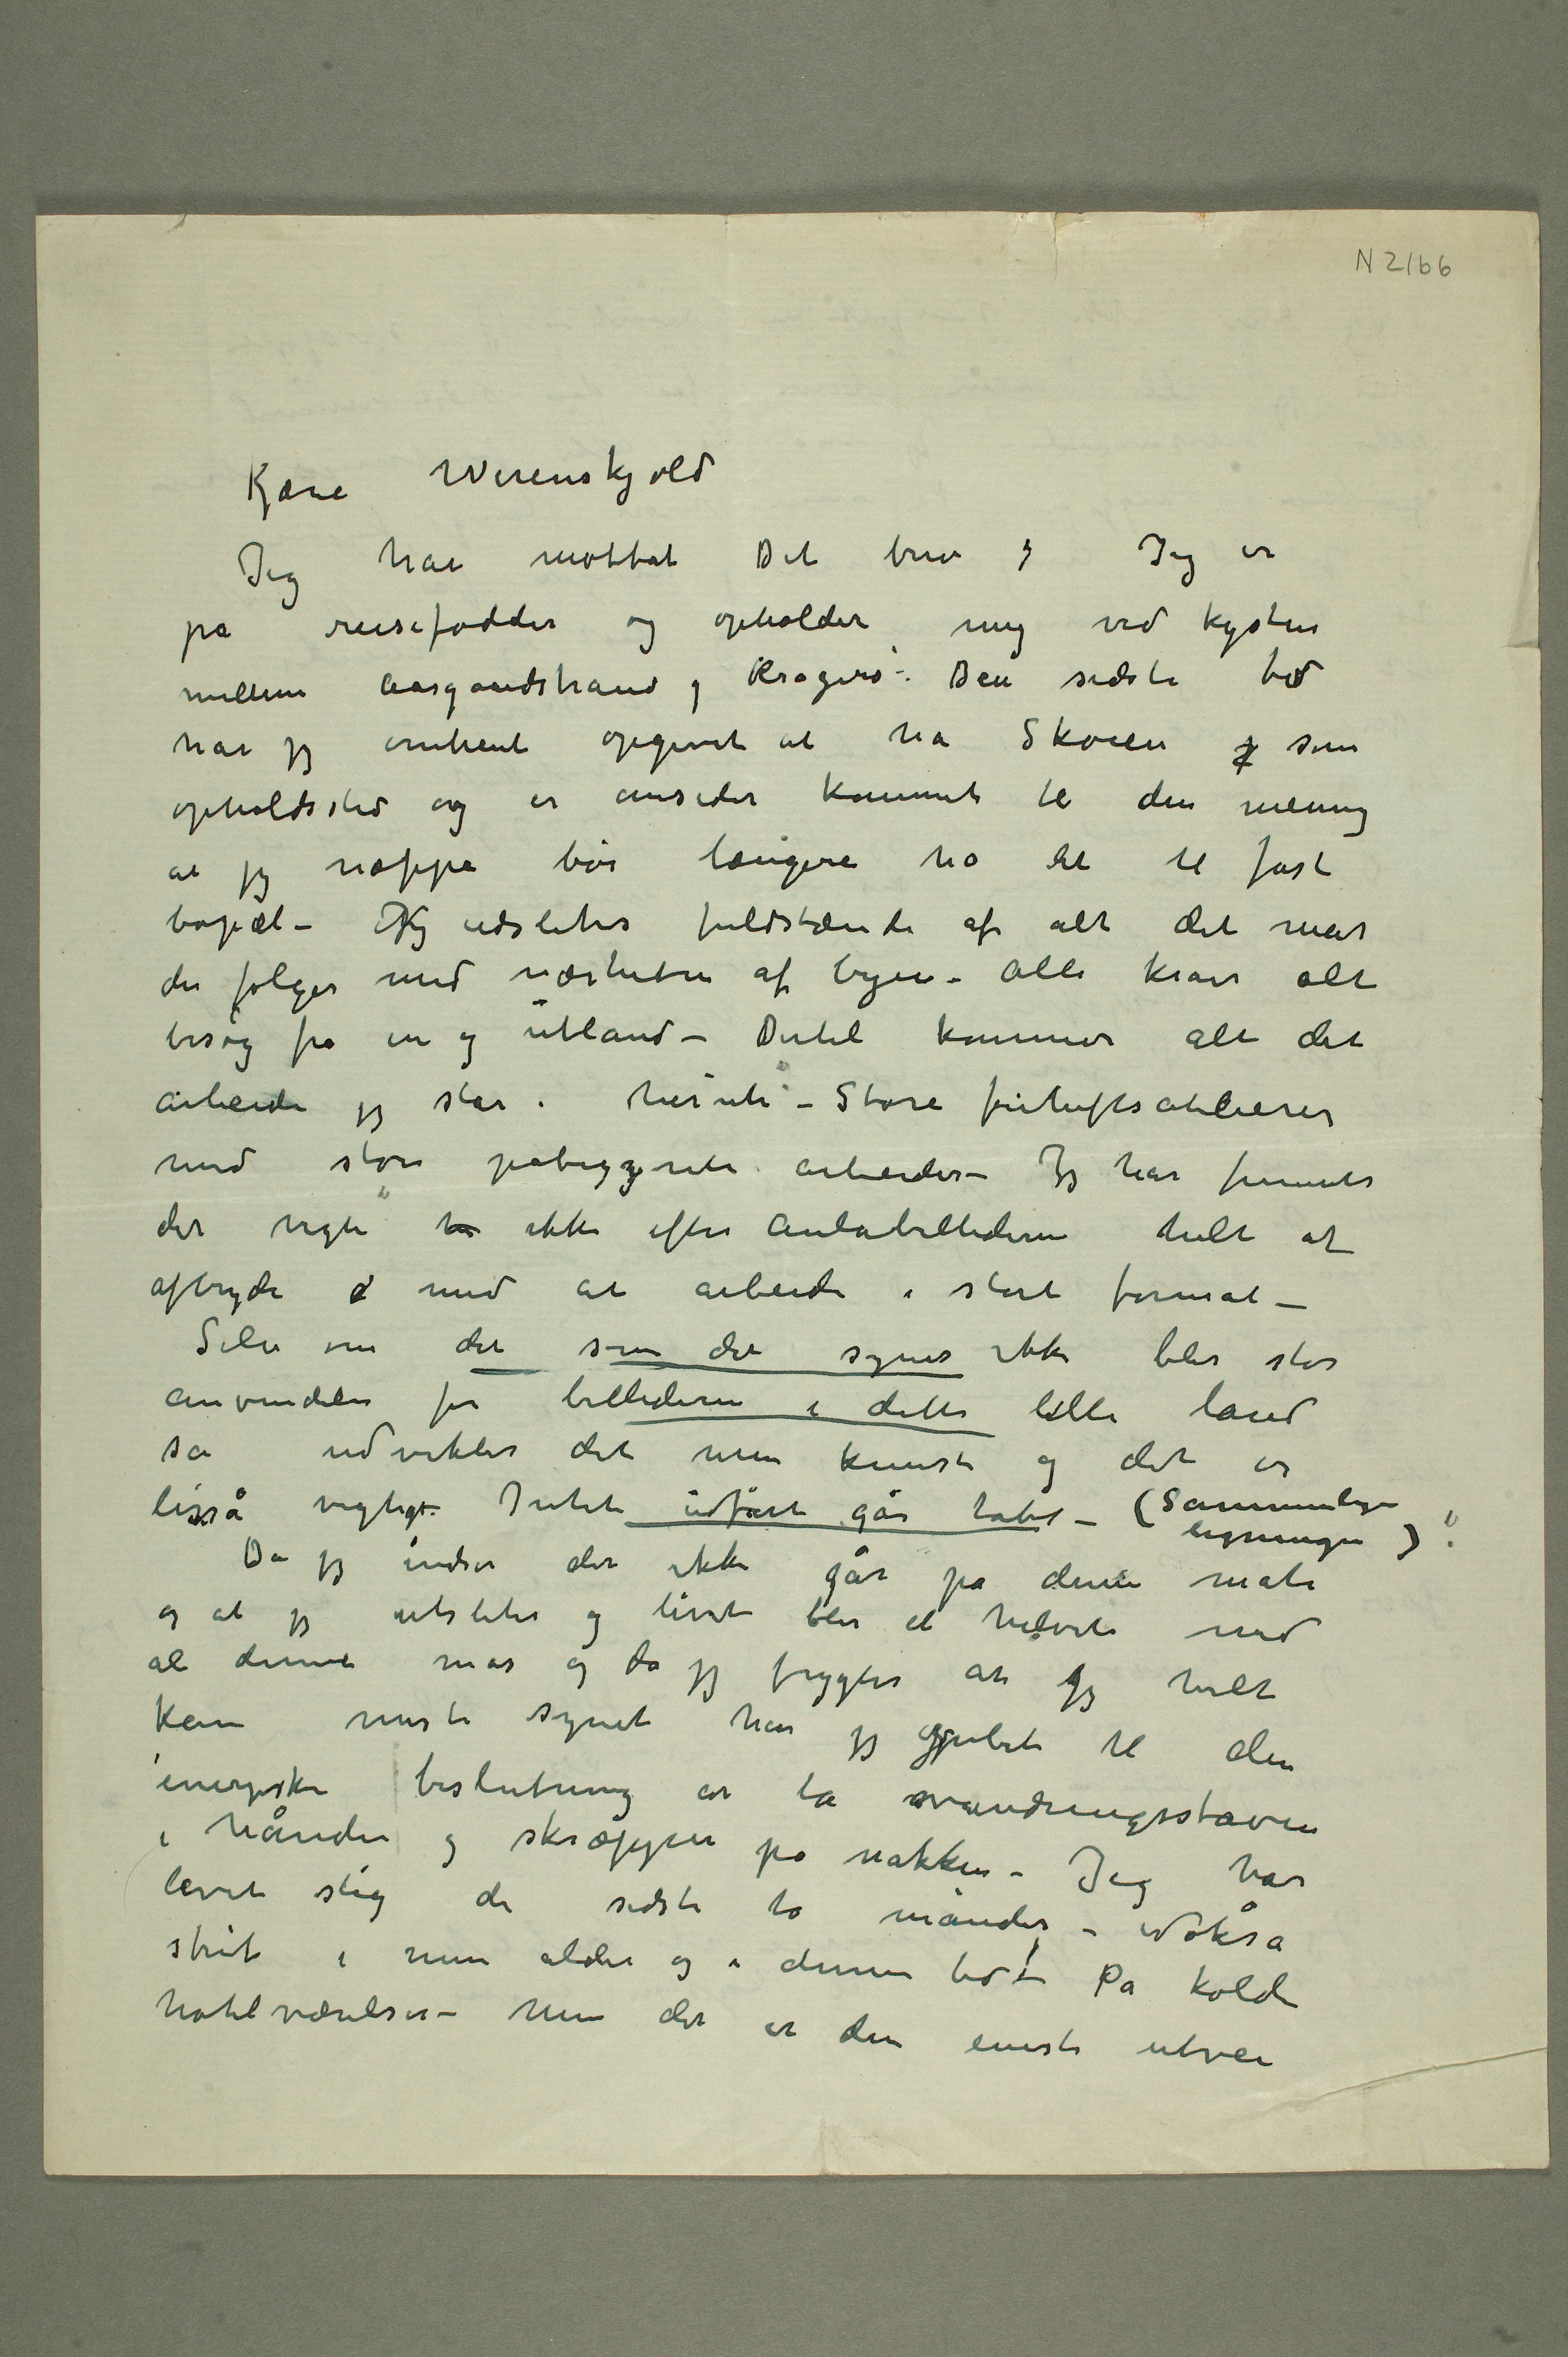 N 2166
Kjære Werenskjold
Jeg har mottat Dit brev Jeg er
på reisefødder og opholder mig ved kysten
mellem Aasgaardstrand og Kragerø. Den sidste tid
har jg omtrent opgivet at ha Skøien som
opholdssted og er omsider kommet til den mening
at jg neppe bør længere ha det til fast
bopæl – Jeg udslites fuldstændi af alt det mas
der følger med nærheten af byen – Alle krav alt
besøg fra in og utland – Dertil kommer alt det
arbeide jg står i herute – Store friluftsatelierer
med store påbegynte arbeider – Jg har funnet
det rigti ikke efter Aulabillederne helt at
afbryde med at arbeide i stort format –
Selv om det som det synes ikke blir stor
anvendelse for billederne i dette lille land
så udvikler det min kunst og det er
lisså vigtigt. Intet udført går tabt – (Sammenlign
ligningen)
Da jg indser det ikke går på denne måte
og at jg utslites og livet blir et helvete med
al denne mas og da jg frygter at jg helt
kan miste synet har jg grebet til den
energiske beslutning at ta vandringsstaven
i hånden og skræppen på nakken – Jeg har
levet slig de sidste to måneder – Nokså
strit i min alder og i denne tid – På kolde
hotelværelser – Men det er den eneste utvei